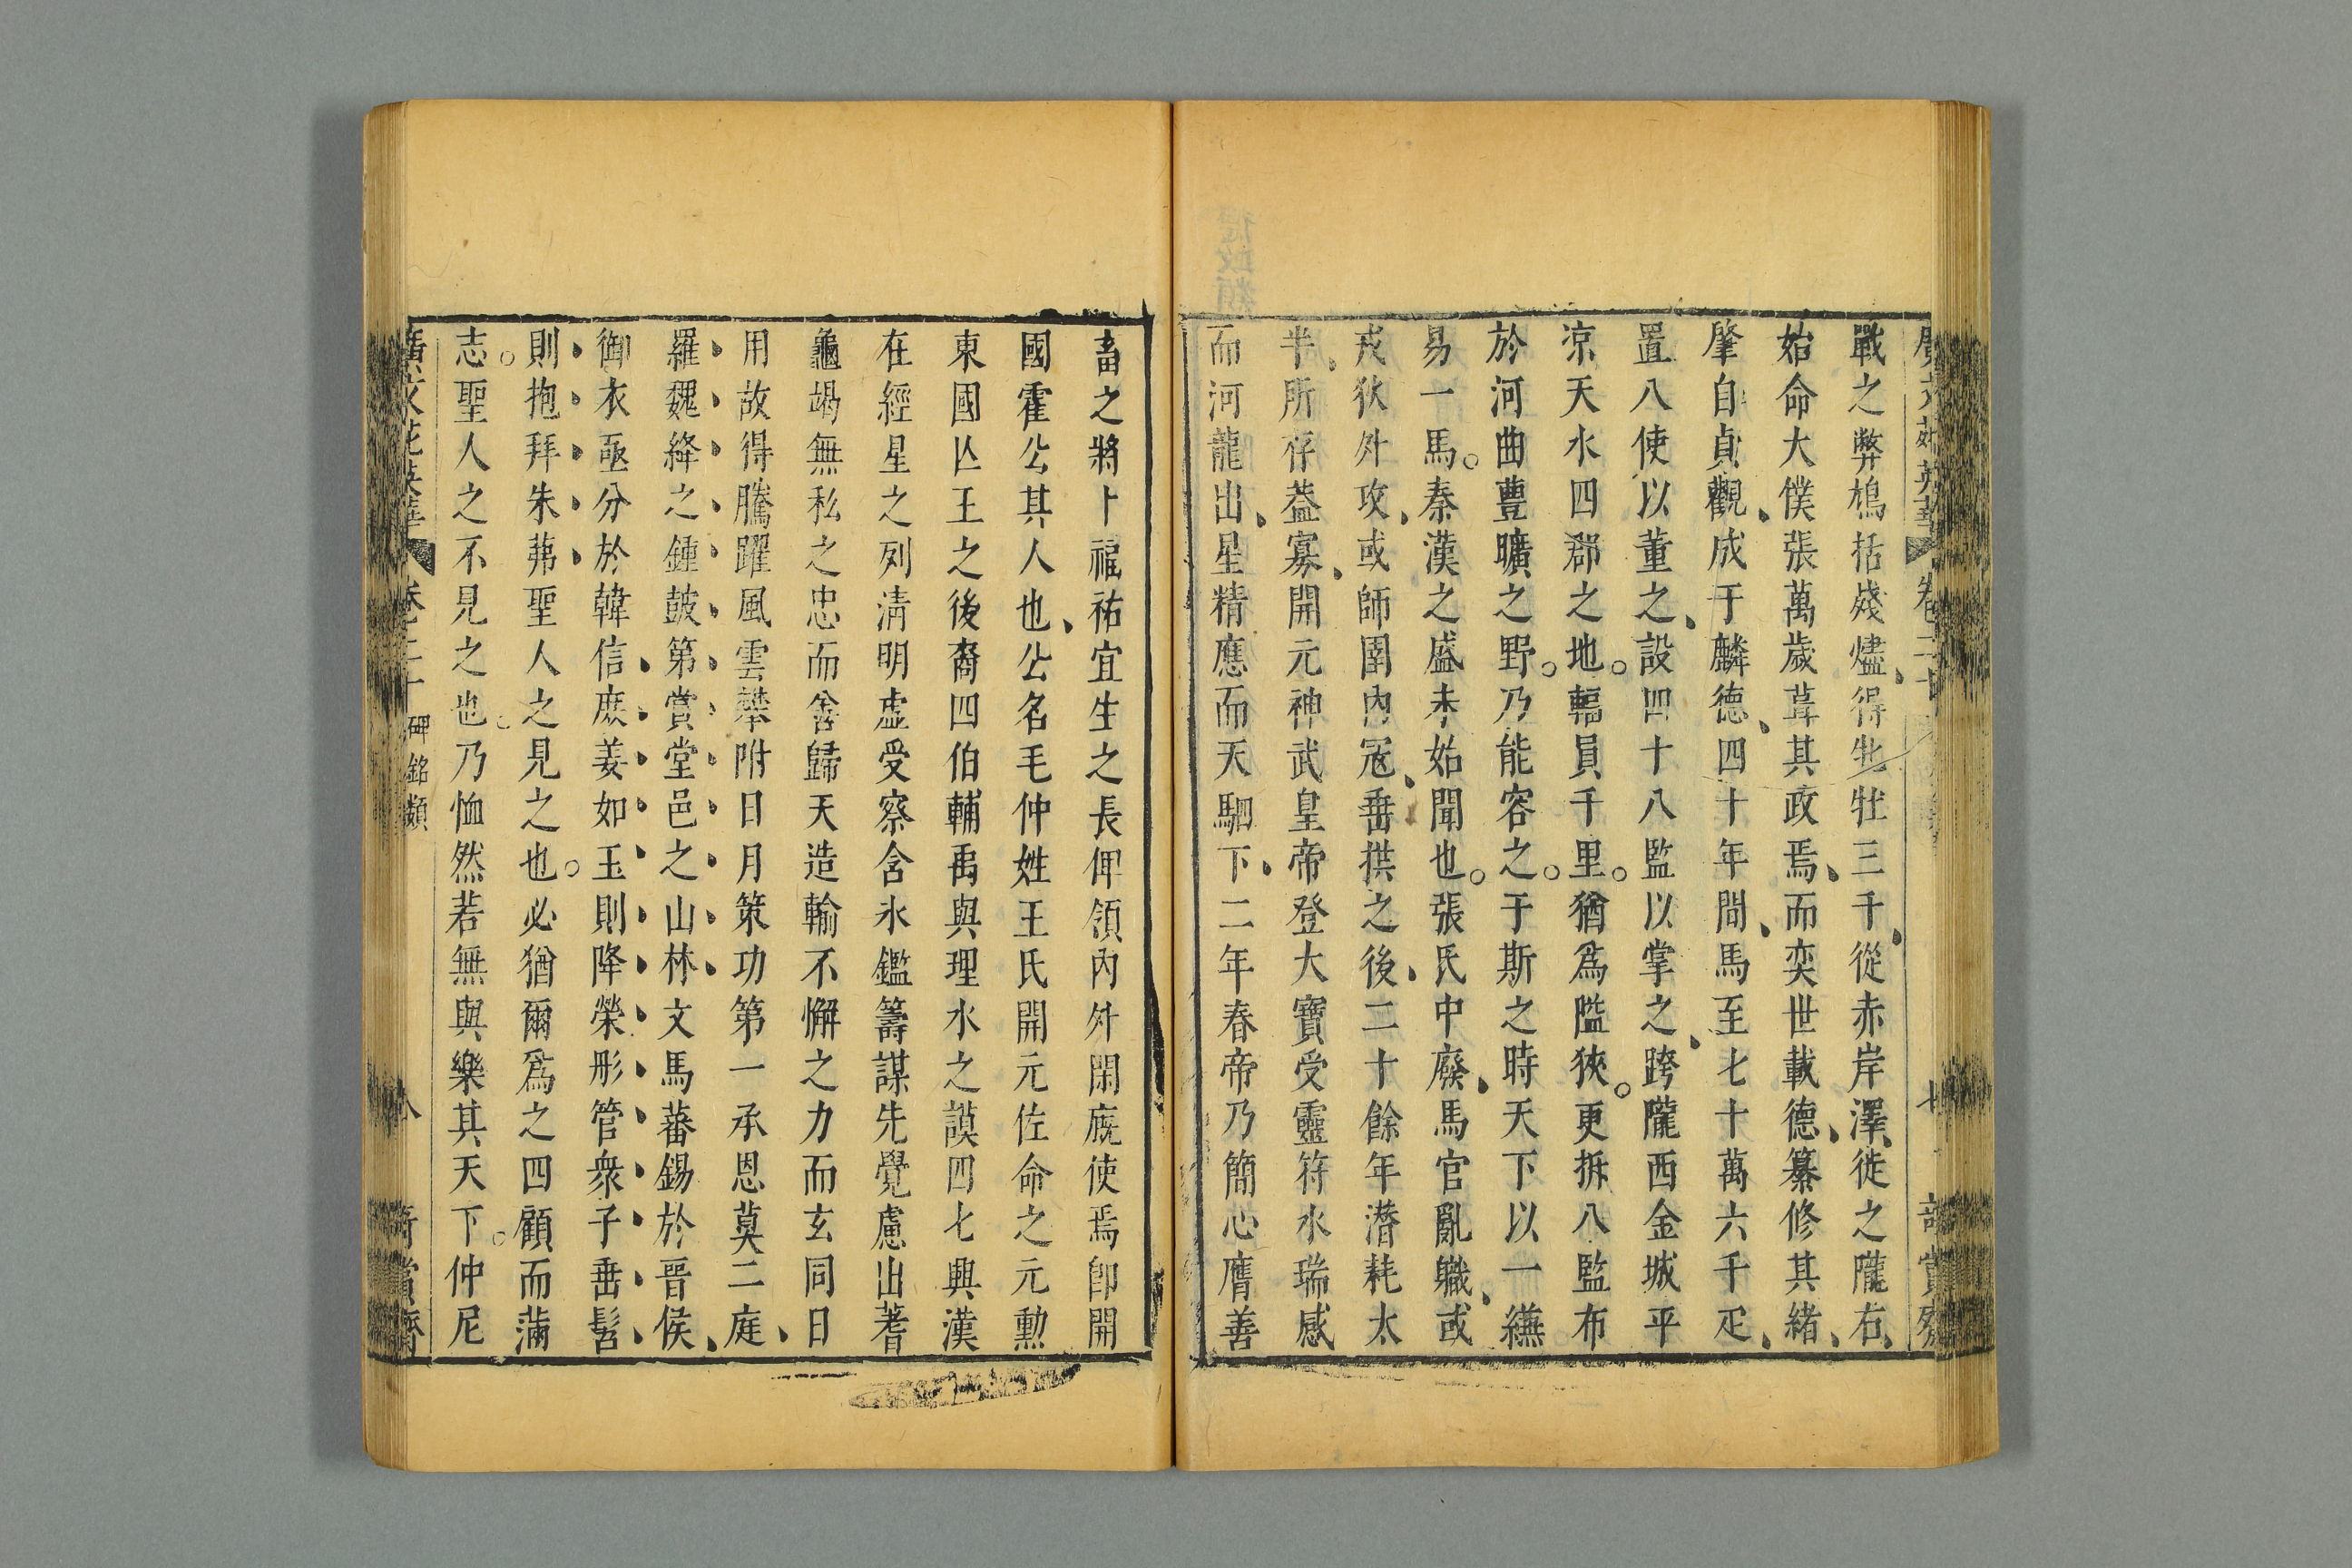 戰之弊鳩括殘燼得牝牡三千從赤岸澤徙之隴右
始命大僕張萬歲葺其政焉而奕世載德纂修其緒
肇自貞觀成于麟德四十年間馬至七十萬六千疋
置八使以董之設四十八監以掌之跨隴西金城平
凉天水四郡之地輻員千里猶爲隘狹更拆八監布
於河曲豊曠之野乃能容之于斯之時天下以一縑
易一馬秦漢之盛未始聞也張氏中廢馬官亂職或
戎狄外攻或師圉內寇垂拱之後二十餘年潛耗太
半所存葢寡開元神武皇帝登大寶受靈符水瑞感
而河龍出星精應而天駟下二年春帝乃簡心膺善
畜之將卜福祐宜生之長俾領內外閑廐使焉卽開
國霍公其人也公名毛仲姓王氏開元佐命之元勳
東國亾王之後裔四伯輔禹與理水之謨四七興漢
在經星之列淸明虛受察含氷鑑籌謀先覺慮出蓍
龜竭無私之忠而舍歸天造輸不懈之力而玄同日
用故得騰躍風雲攀附日月策功第一承恩莫二庭
羅魏絳之鍾鼓第賞堂邑之山林文馬蕃錫於晋侯
御衣亟分於韓信庶姜如玉則降榮彤管衆子垂髫
則抱拜朱茀聖人之見之也必猶爾爲之四顧而滿
志聖人之不見之也乃恤然若無與樂其天下仲尼
卷二十 碑銘類 八